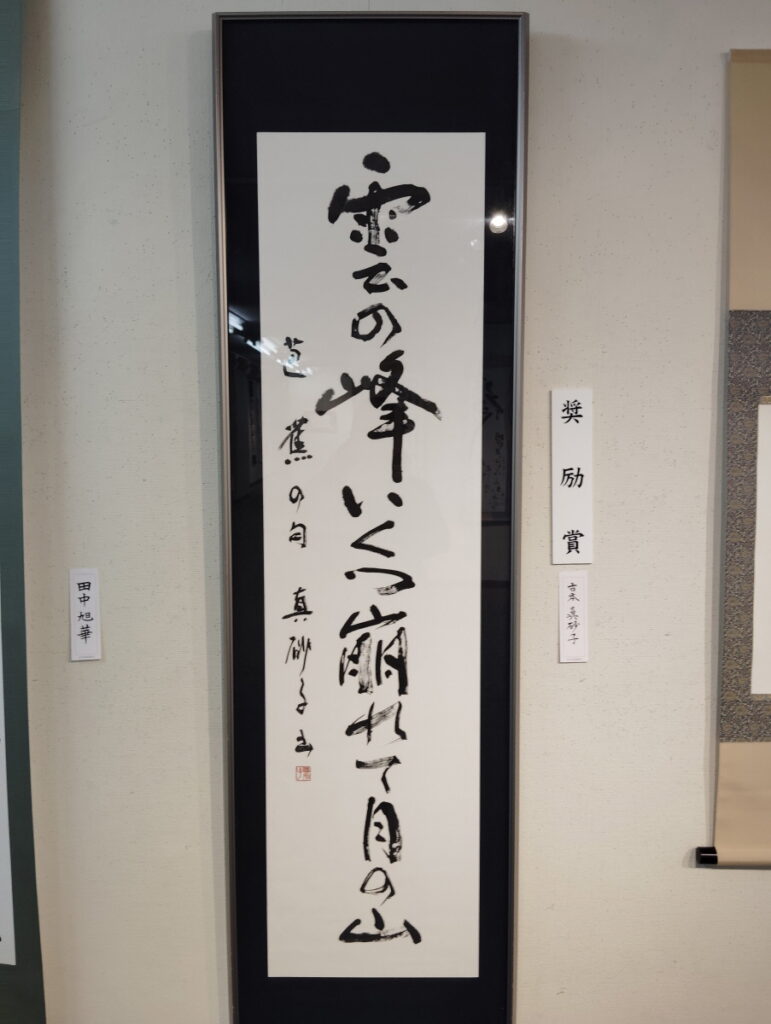 雲の峰いくつ崩れて月の山
芭蕉の句 真砂子書
奨励賞
吉本真砂子
田中旭華